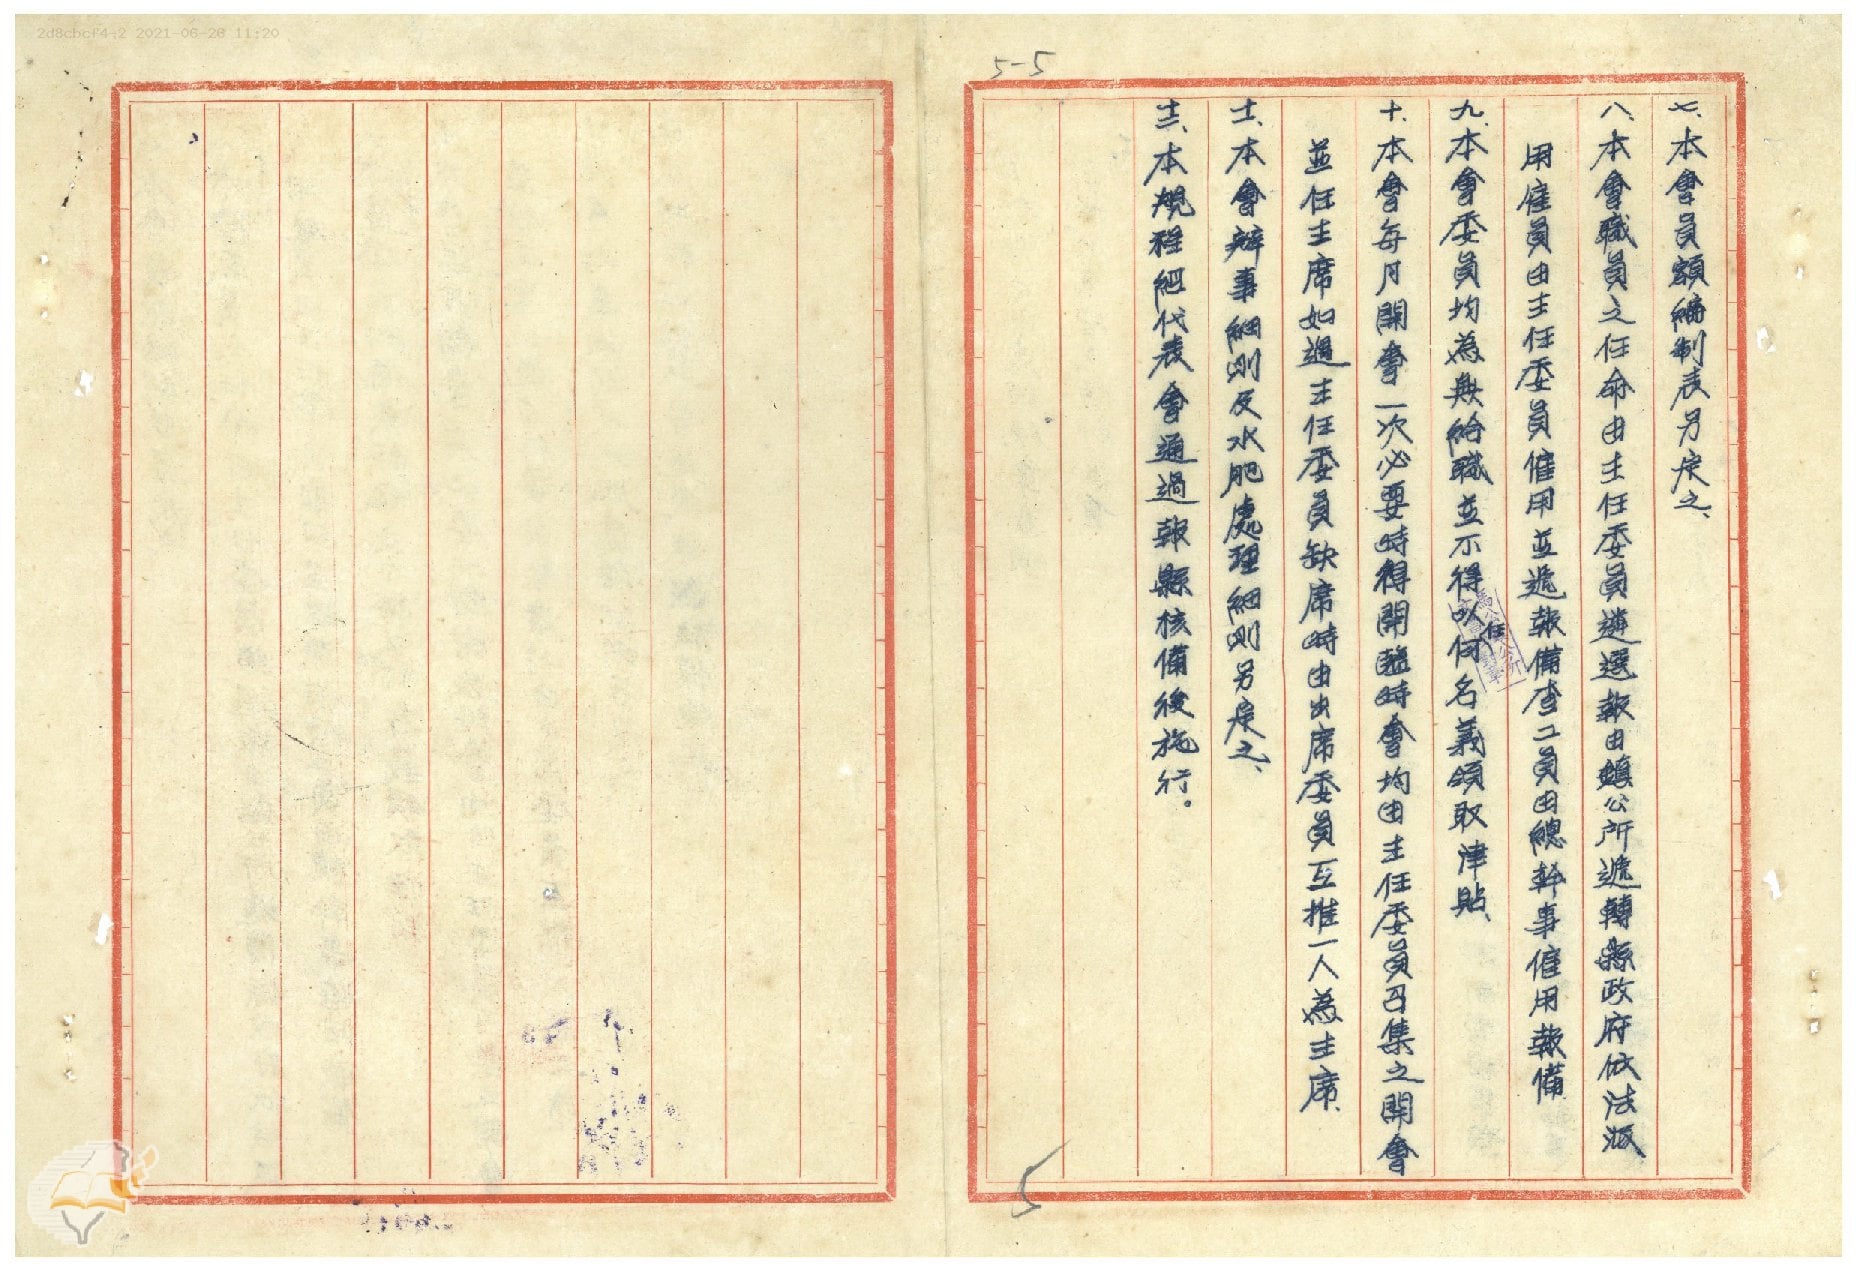 2d8cbcf4-2 2021-06-28 11:20
5-5
七、本會員額編制表另定之、
八、本會職員之任命由主任委員遴選報由鎮公所遞轉縣政府依法派
用雇員由主任委員僱用並遞報備查工員由總幹事僱用報備
九、本會委員均為無給職並不得以任何名義領取津貼、
十、本會每月開會一次必要時得開臨時會均由主任委員召集之開會
並任主席如過主任委員缺席時由出席委員互推一人為主席
十一、本會辦事細則及水肥處理細則另定之、
十二、本規程經代表會通過報縣核備後施行。
5